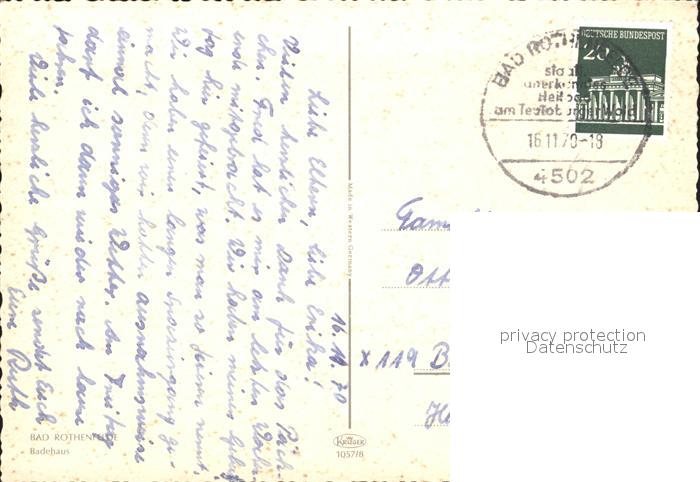 16. 11. 70
Liebe Eltern, liebe Erika!
Vielen herzlichen Dank für das Päck-
chen. Fred hat es mir am letzten
erst mitgebracht. Wir haben meinen Geburts
tag hin gefeiert, was man so feiern nennt,
Wir haben einen langen Spaziergang ge-
macht, denn wir hatten ausnahmsweise
einmal sonniges Wetter. Am Freitag
darf ich dann wieder nach Hause
fahren.
Viele herzliche Grüße sendet Euch
Eure Ruth
BAD ROTHENFELDE
Badehaus
Made in Western Germany
KRÜGER
1057/8
DEUTSCHE BUNDESPOST
20
BAD ROTHENFELDE
staatl.
anerkanntes
Heilbad
am Teutoburger Wald
16.11.70-18
4502
Fam
Ott
X 119 B
privacy protection
Datenschutz